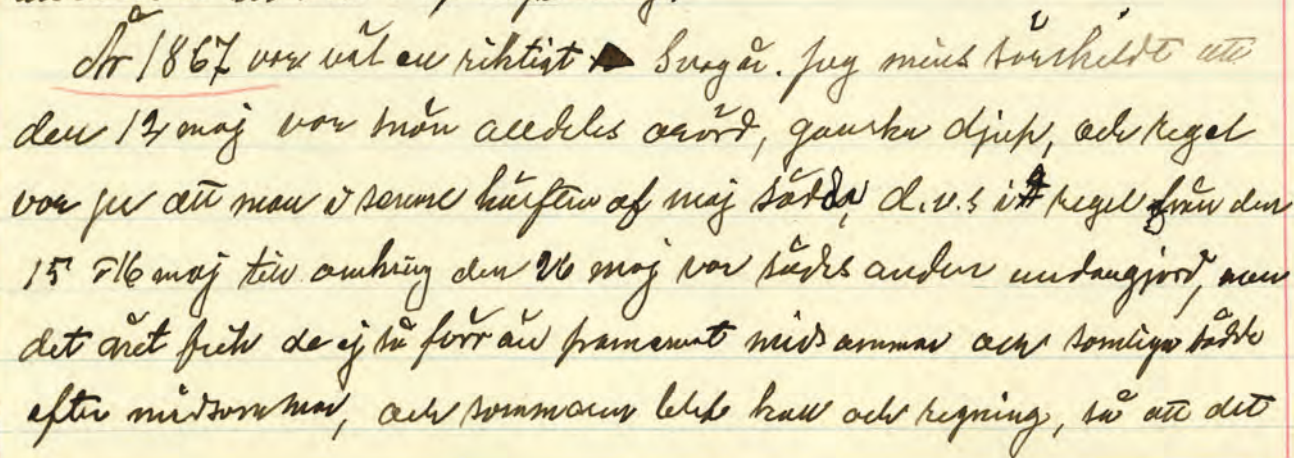 År 1867 var väl en riktigt Svagår. Jag mins särskildt att
den 12 maj var snön alldeles orörd, ganska djup, och regel
var ju att man i senare hälften af maj sådde, d.v.s i regel från den
15 à 16 maj till omkring den 26 maj var sådes anden undangjord, men
det året fick de ej så förr än framemot midsommar och somliga sådde
efter midsommar, och sommaren blef kall och regning, så att det